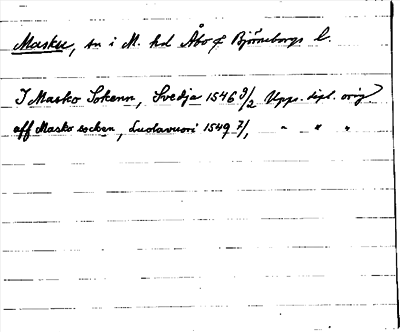 Masku, sn i M. hd Åbo o Björneborgs l.
I Masko Sokenn, Svedja 1546 9/2 Upps. dipl. orig.
aff Masko socken, Luolavuori 1549 7/1 " " "